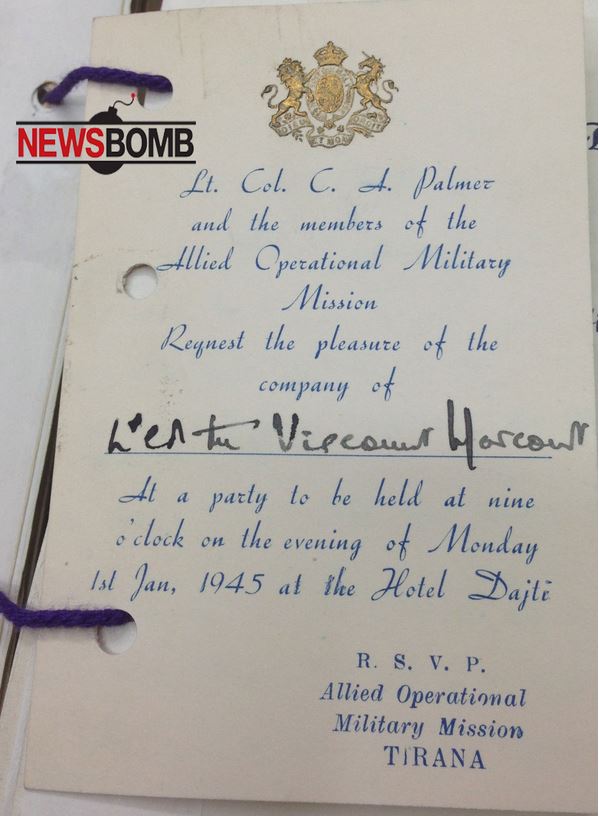 NEWSBOMB
Lt. Col. C. A. Palmer
and the members of the
Allied Operational Military
Mission
Reqnest the pleasure of the
company of
Viscount Harcourt
At a party to be held at nine
o'clock on the evening of Monday
1st Jan, 1945 at the Hotel Dajti
R. S. V. P.
Allied Operational
Military Mission
TIRANA